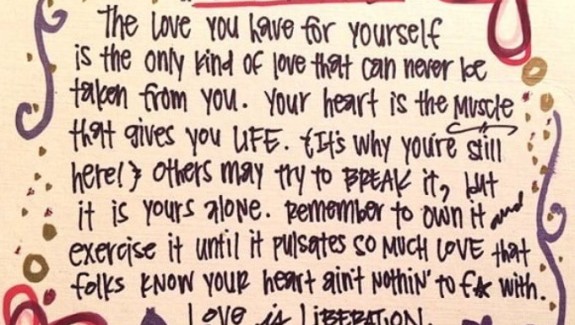 The Love you have for yourself
is the only kind of love that can never be
taken from you. Your heart is the muscle
that gives you LIFE. {It's why you're still
here!} Others may try to BREAK it, but
it is yours alone. Remember to own it and
exercise it until it pulsates so MUCH LOVE that
folks KNOW YOUR heart ain't nothin' to f*k with.
Love is LIBERATION.